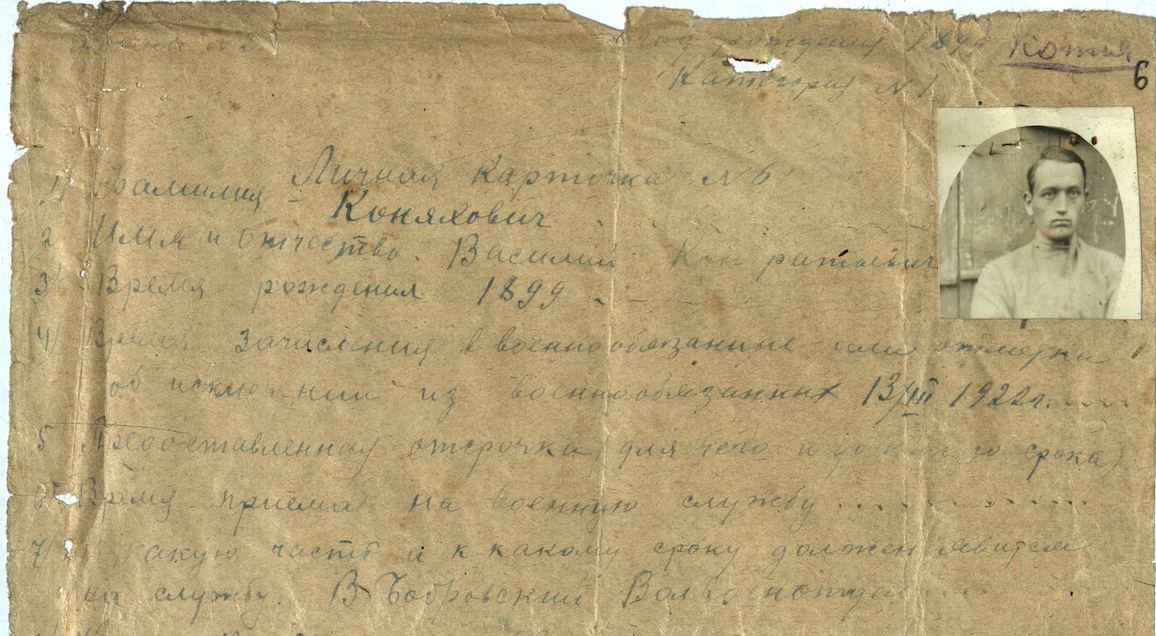 год рождения 1899
Копия
Категория N 1
6
Личная Карточка N 6
1) Фамилия - Коняхович
2 Имя и отчество. Василий Кондратьевич
3) Время рождения 1899
4) Время зачисления в военнообязанные или отметка
об исключении из военнообязанных 13/III 1922 г.....
5 Предоставленная отсрочка (для чего и до какого срока)
6) Время приема на военную службу ............
7) В какую часть и к какому сроку должен явится
на службу. В Бобровский Волвоенотдел